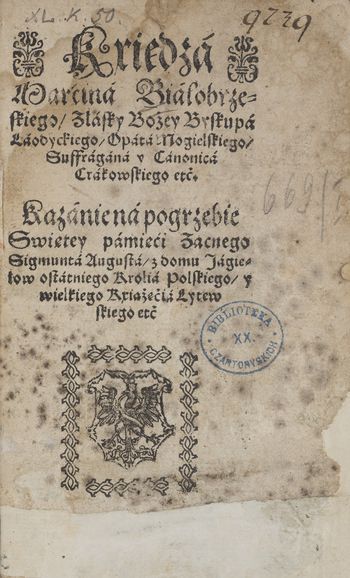 XL. K. 50.
9239
Kxiedzá
Marciná Białobrze-
skiego/ Złásky Bożey Byskupá
Láodyckiego/ Opátá Mogielskiego/
Suffrágáná y Canonicá
Crákowskiego etc.
Kazánie ná pogrzebie
Swietey pámieći Zacnego
Sigmuntá Augustá/ z domu Jágie-
łow ostátniego Krolá Polskiego/ y
wielkiego Kxiążećiá Lytew
skiego etc
BIBLIOTEKA
XX.
CZARTORYSKICH